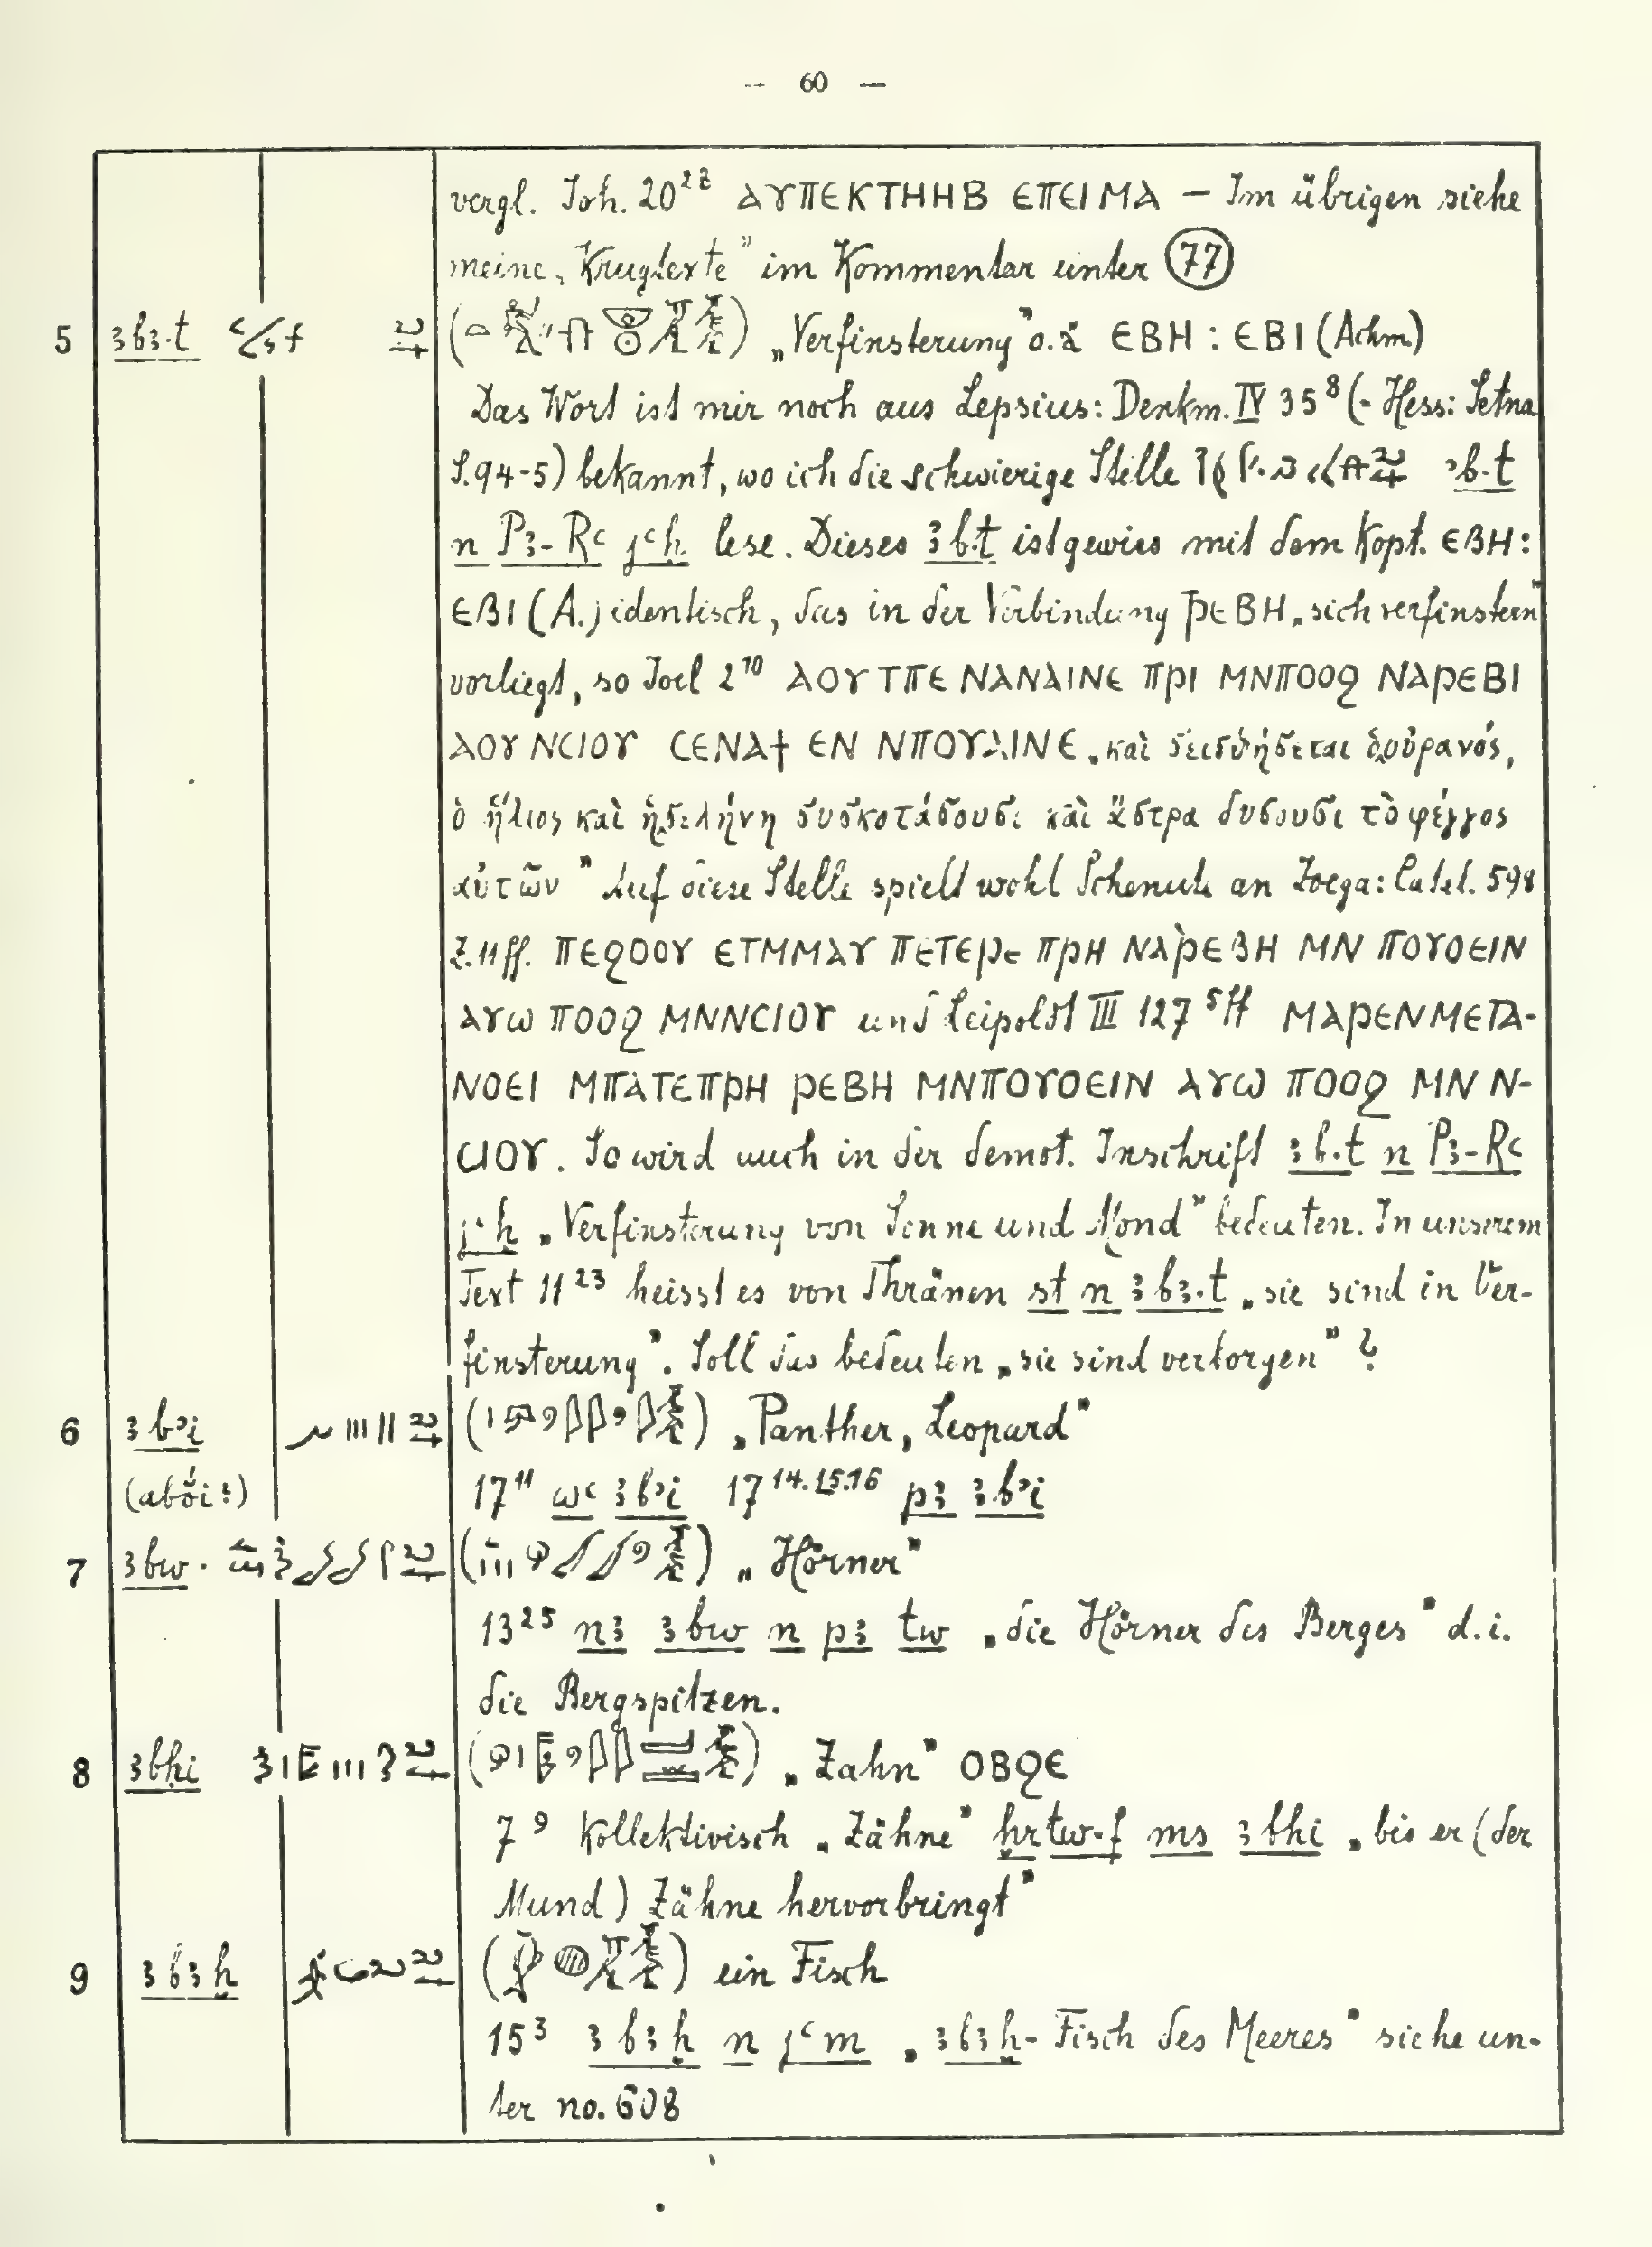 — 60 —
vergl. Joh. 20²² ⲀⲨⲠⲈⲔⲦⲎⲎⲂ ⲈⲠⲈⲒⲘⲀ — Im übrigen siehe
meine „Krugtexte" im Kommentar unter (77)
5 ꜣbꜣ.t „Verfinsterung" o.ä ⲈⲂⲎ : ⲈⲂⲒ (Achm)
Das Wort ist mir noch aus Lepsius: Denkm. IV 35⁸ (= Hess: Setna
S.94-5) bekannt, wo ich die schwierige Stelle ꜣb.t
n Pꜣ-Rꜥ jꜥḥ lese. Dieses ꜣb.t ist gewiss mit dem Kopt. ⲈⲂⲎ:
ⲈⲂⲒ (A.) identisch, das in der Verbindung ⲢⲈⲂⲎ „sich verfinstern"
vorliegt, so Joel 2¹⁰ ⲀⲞⲨ ⲦⲠⲈ ⲚⲀⲚⲀⲒⲚⲈ ⲠⲢⲒ ⲘⲚⲠⲞⲞϨ ⲚⲀⲢⲈⲂⲒ
ⲀⲞⲨ ⲚⲤⲒⲞⲨ ⲤⲈⲚⲀϮ ⲈⲚ ⲚⲠⲞⲨⲀⲒⲚⲈ „καὶ σεισθήσεται ὁ οὐρανός,
ὁ ἥλιος καὶ ἡ σελήνη συσκοτάσουσι καὶ ἄστρα δύσουσι τὸ φέγγος
αὐτῶν" Auf diese Stelle spielt wohl Schenute an Zoega: Catal. 598
Z. 11 ff. ⲠⲈϨⲞⲞⲨ ⲈⲦⲘⲘⲀⲨ ⲠⲈⲦⲈⲢⲈ ⲠⲢⲎ ⲚⲀⲢⲈⲂⲎ ⲘⲚ ⲠⲞⲨⲞⲈⲒⲚ
ⲀⲨⲰ ⲠⲞⲞϨ ⲘⲚⲚⲤⲒⲞⲨ und Leipoldt III 127⁵ᶠᶠ ⲘⲀⲢⲈⲚⲘⲈⲦⲀ-
ⲚⲞⲈⲒ ⲘⲠⲀⲦⲈⲠⲢⲎ ⲢⲈⲂⲎ ⲘⲚⲠⲞⲨⲞⲈⲒⲚ ⲀⲨⲰ ⲠⲞⲞϨ ⲘⲚ Ⲛ-
ⲤⲒⲞⲨ. So wird auch in der demot. Inschrift ꜣb.t n Pꜣ-Rꜥ
jꜥḥ „Verfinsterung von Sonne und Mond" bedeuten. In unserem
Text 11²³ heisst es von Thränen st n ꜣbꜣ.t „sie sind in Ver-
finsterung". Soll das bedeuten „sie sind verborgen"?
6 ꜣbꜣi „Panther, Leopard"
(abŏ́i?) 17¹¹ wꜥ ꜣbꜣi 17¹⁴·¹⁵·¹⁶ pꜣ ꜣbꜣi
7 ꜣbw. „Hörner"
13²⁵ nꜣ ꜣbw n pꜣ tw „die Hörner des Berges" d.i.
die Bergspitzen.
8 ꜣbḥi „Zahn" ⲞⲂϨⲈ
7⁹ Kollektivisch „Zähne" ḫrtw-f ms ꜣbḥi „bis er (der
Mund) Zähne hervorbringt"
9 ꜣbꜣḫ ein Fisch
15³ ꜣbꜣḫ n jꜥm „ꜣbꜣḫ-Fisch des Meeres" siehe un-
ter no. 608